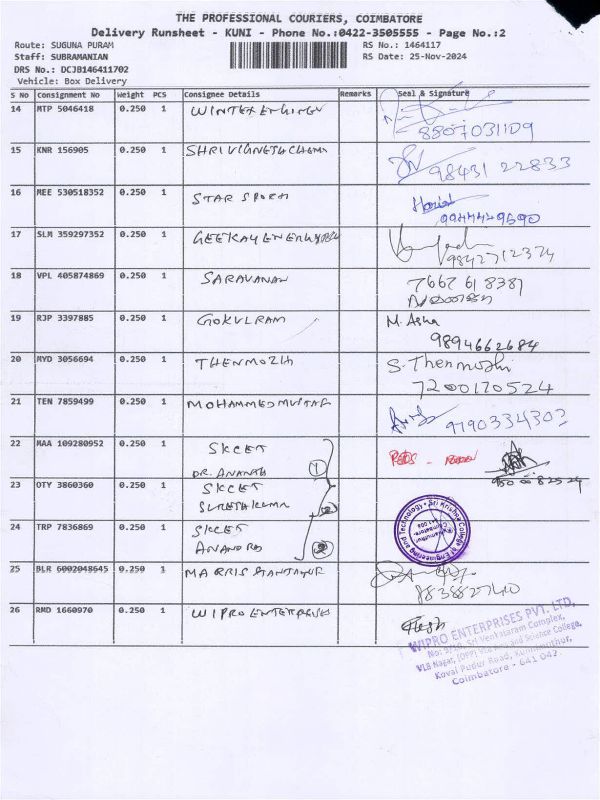 THE PROFESSIONAL COURIERS, COIMBATORE
Delivery Runsheet - KUNI - Phone No.:0422-3505555 - Page No.:2
Route: SUGUNA PURAM RS No.: 1464117
Staff: SUBRAMANIAN RS Date: 25-Nov-2024
DRS No.: DCJB146411702
Vehicle: Box Delivery
S No Consignment No Weight PCS Consignee Details Remarks Seal & Signature
14 MTP 5046418 0.250 1 WINTEX
8807031109
15 KNR 156905 0.250 1 SHRI VIGNETH CHEMI
98431 22833
16 MEE 530518352 0.250 1 STAR SPORTS
17 SLM 359297352 0.250 1 GEEKAY
9842712374
18 VPL 405874869 0.250 1 SARAVANAN 7667 61 8381
19 RJP 3397885 0.250 1 GOKULRAM M. Asha
9894662684
20 MYD 3056694 0.250 1 THENMOZHI S. Thenmozhi
7200170524
21 TEN 7859499 0.250 1 MOHAMMED MUSTAF
9790334302
22 MAA 109280952 0.250 1 SKCET
DR. ANANTH 1
23 OTY 3860360 0.250 1 SKCET
SURESH KUMAR 2
24 TRP 7836869 0.250 1 SKCET
ANAND
Sri Krishna College of Engineering and Technology
Coimbatore
25 BLR 6002048645 0.250 1 MARRIS
26 RMD 1660970 0.250 1 WIPRO ENTERPRISES
WIPRO ENTERPRISES PVT. LTD.
Sri Venkataram Complex,
VLB Nagar, and Science College,
Kovai Pudur Road, Kuniamuthur,
Coimbatore - 641 042.